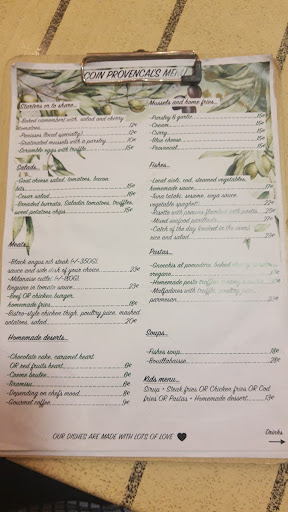 COIN PROVENCAL'S MENU
Starters or to share...
-Baked camembert with salad and cherry
tomatoes 12e
-Panisses (local specialty) 12e
-Gratinated mussels with a parsley 10e
-Scramble eggs with truffle 15e
Salads...
-Goat cheese salad, tomatoes, bacon,
15e
-Cesar salad 18e
-Breaded tomato, Saladin tomatoes, truffles,
sweet potatoes chips 15e
Meats
-Black angus rib steak (+/-350G),
sauce and side dish of your choice 23e
-Milanaise cutlet (+/-350G)
linguine in tomato sauce 23e
-Beef OR chicken burger,
homemade fries 18e
-Bistro-style chicken thigh, poultry juice, mashed
potatoes, salad 20e
Homemade deserts...
-Chocolate cake, caramel heart
OR red fruits heart 8e
-Creme brulee 8e
-Tiramisu 8e
-Depending on chefs mood 8e
-Gourmet coffee 9e
Mussels and home fries...
-Parsley & garlic 15e
-Cream 15e
-Curry 15e
-Blue cheese 15e
-Provencal 15e
Fishes...
-Local aioli, cod, steamed vegetables,
homemade sauce
-Tuna tataki, sesame, soya sauce,
vegetable spaghetti
-Risotto with prawns
-Mixed seafood
-Catch of the day (cooked in the oven)
rice and salad
Pastas...
-Gnocchis al pomodoro,
oregano
-Homemade pesto
-Malfadines with truffle, poultry juice,
parmesan 24e
Soups...
-Fishes soup 18e
-Bouillabaisse 28e
Kids menu...
Sirup + Steak fries OR Chicken fries OR Cod
fries OR Pastas + Homemade dessert 13e
OUR DISHES ARE MADE WITH LOTS OF LOVE
Drinks